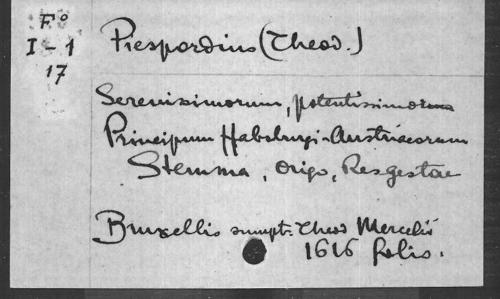 Fº
I-1
17
Prespordius (Theod.)
Serenissimorum, potentissimorum
Principum Habsburgi-Austriacorum
Stemma, Origo, Resgestae
Bruxellis sumpt. Theod Mercelii
1616 folio.